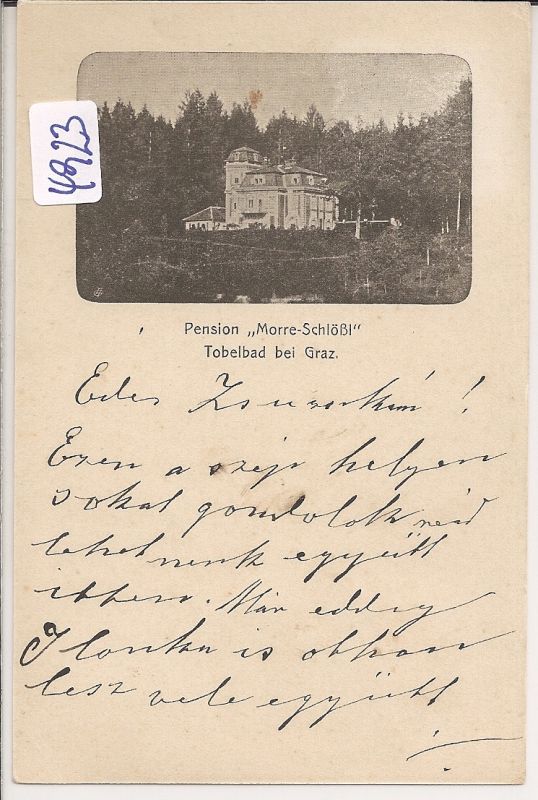 4923
Pension „Morre-Schlößl"
Tobelbad bei Graz.
Edes !
Ezen a szép helyen
sokat gondolok reád
lehetnenk együtt
itten. Már eddig
Ilonka is otthon
lesz vele együtt